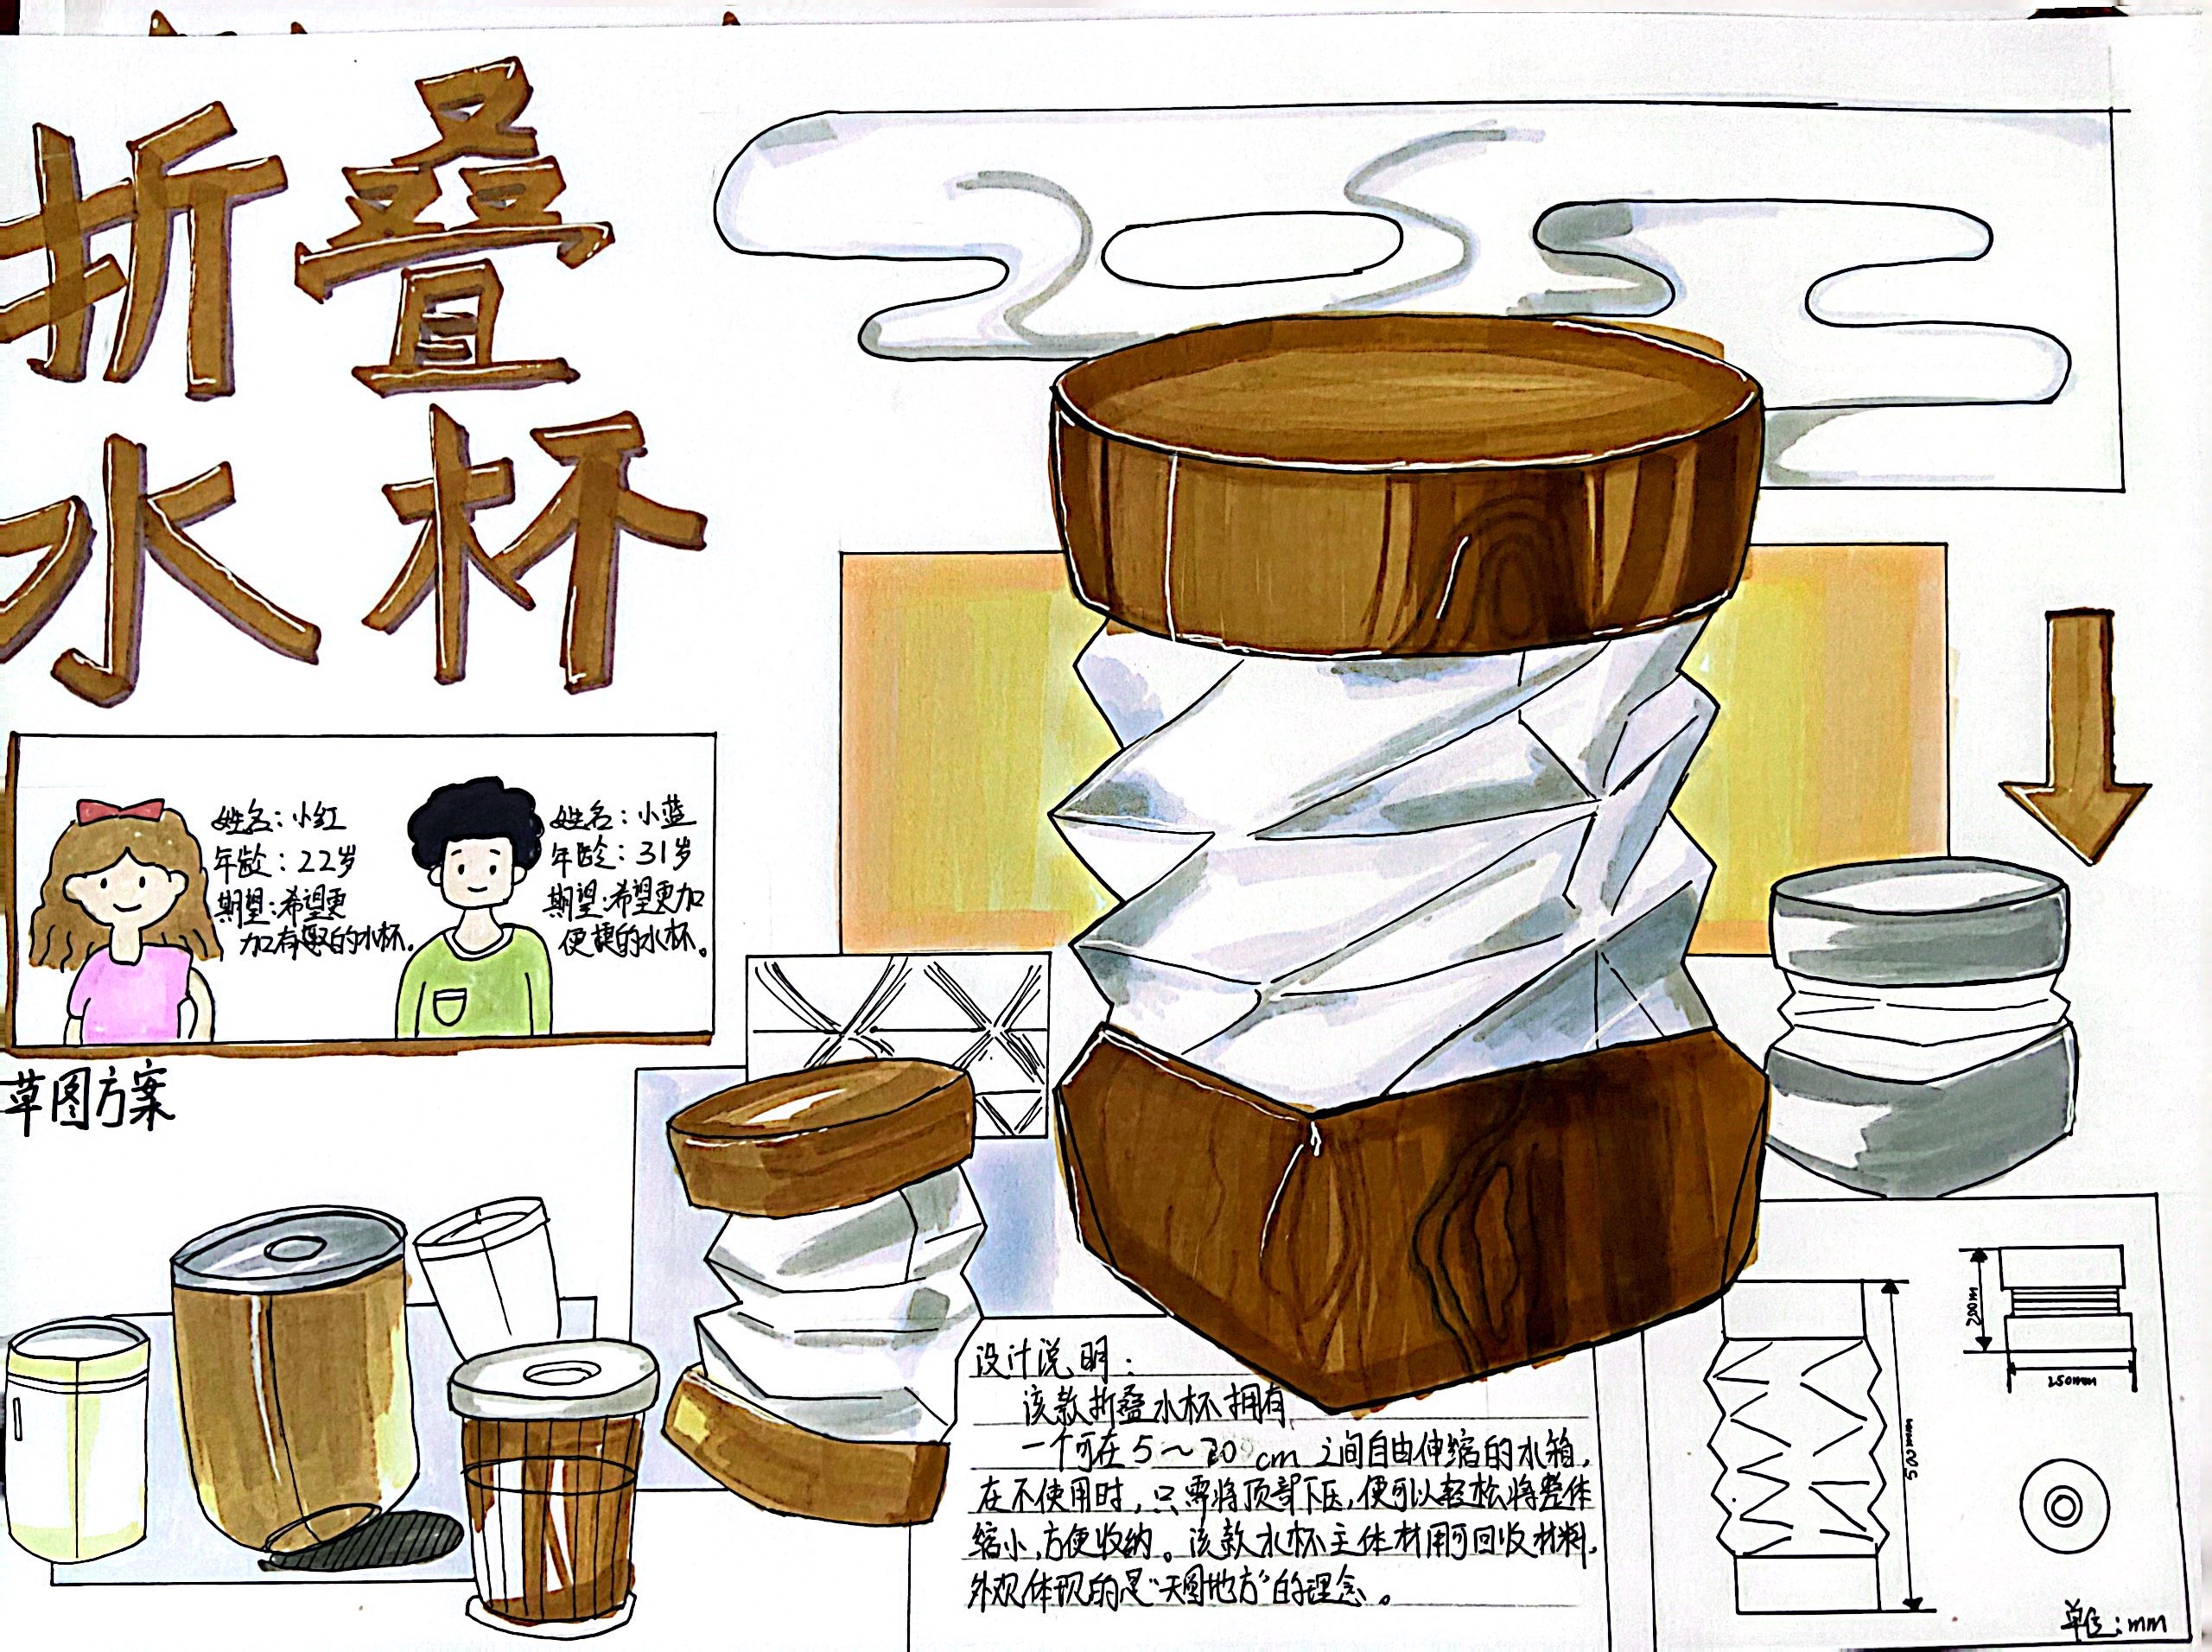 折叠
水杯
姓名：小红
年龄：22岁
期望：希望更
加有趣的水杯。
姓名：小蓝
年龄：31岁
期望：希望更加
便捷的水杯。
草图方案
设计说明：
该款折叠水杯拥有
一个可在5～20cm之间自由伸缩的水箱，
在不使用时，只需将顶部下压，便可以轻松将整体
缩小，方便收纳。该款水杯主体材用可回收材料，
外观体现的是“天圆地方”的理念。
200mm
250mm
500mm
单位：mm